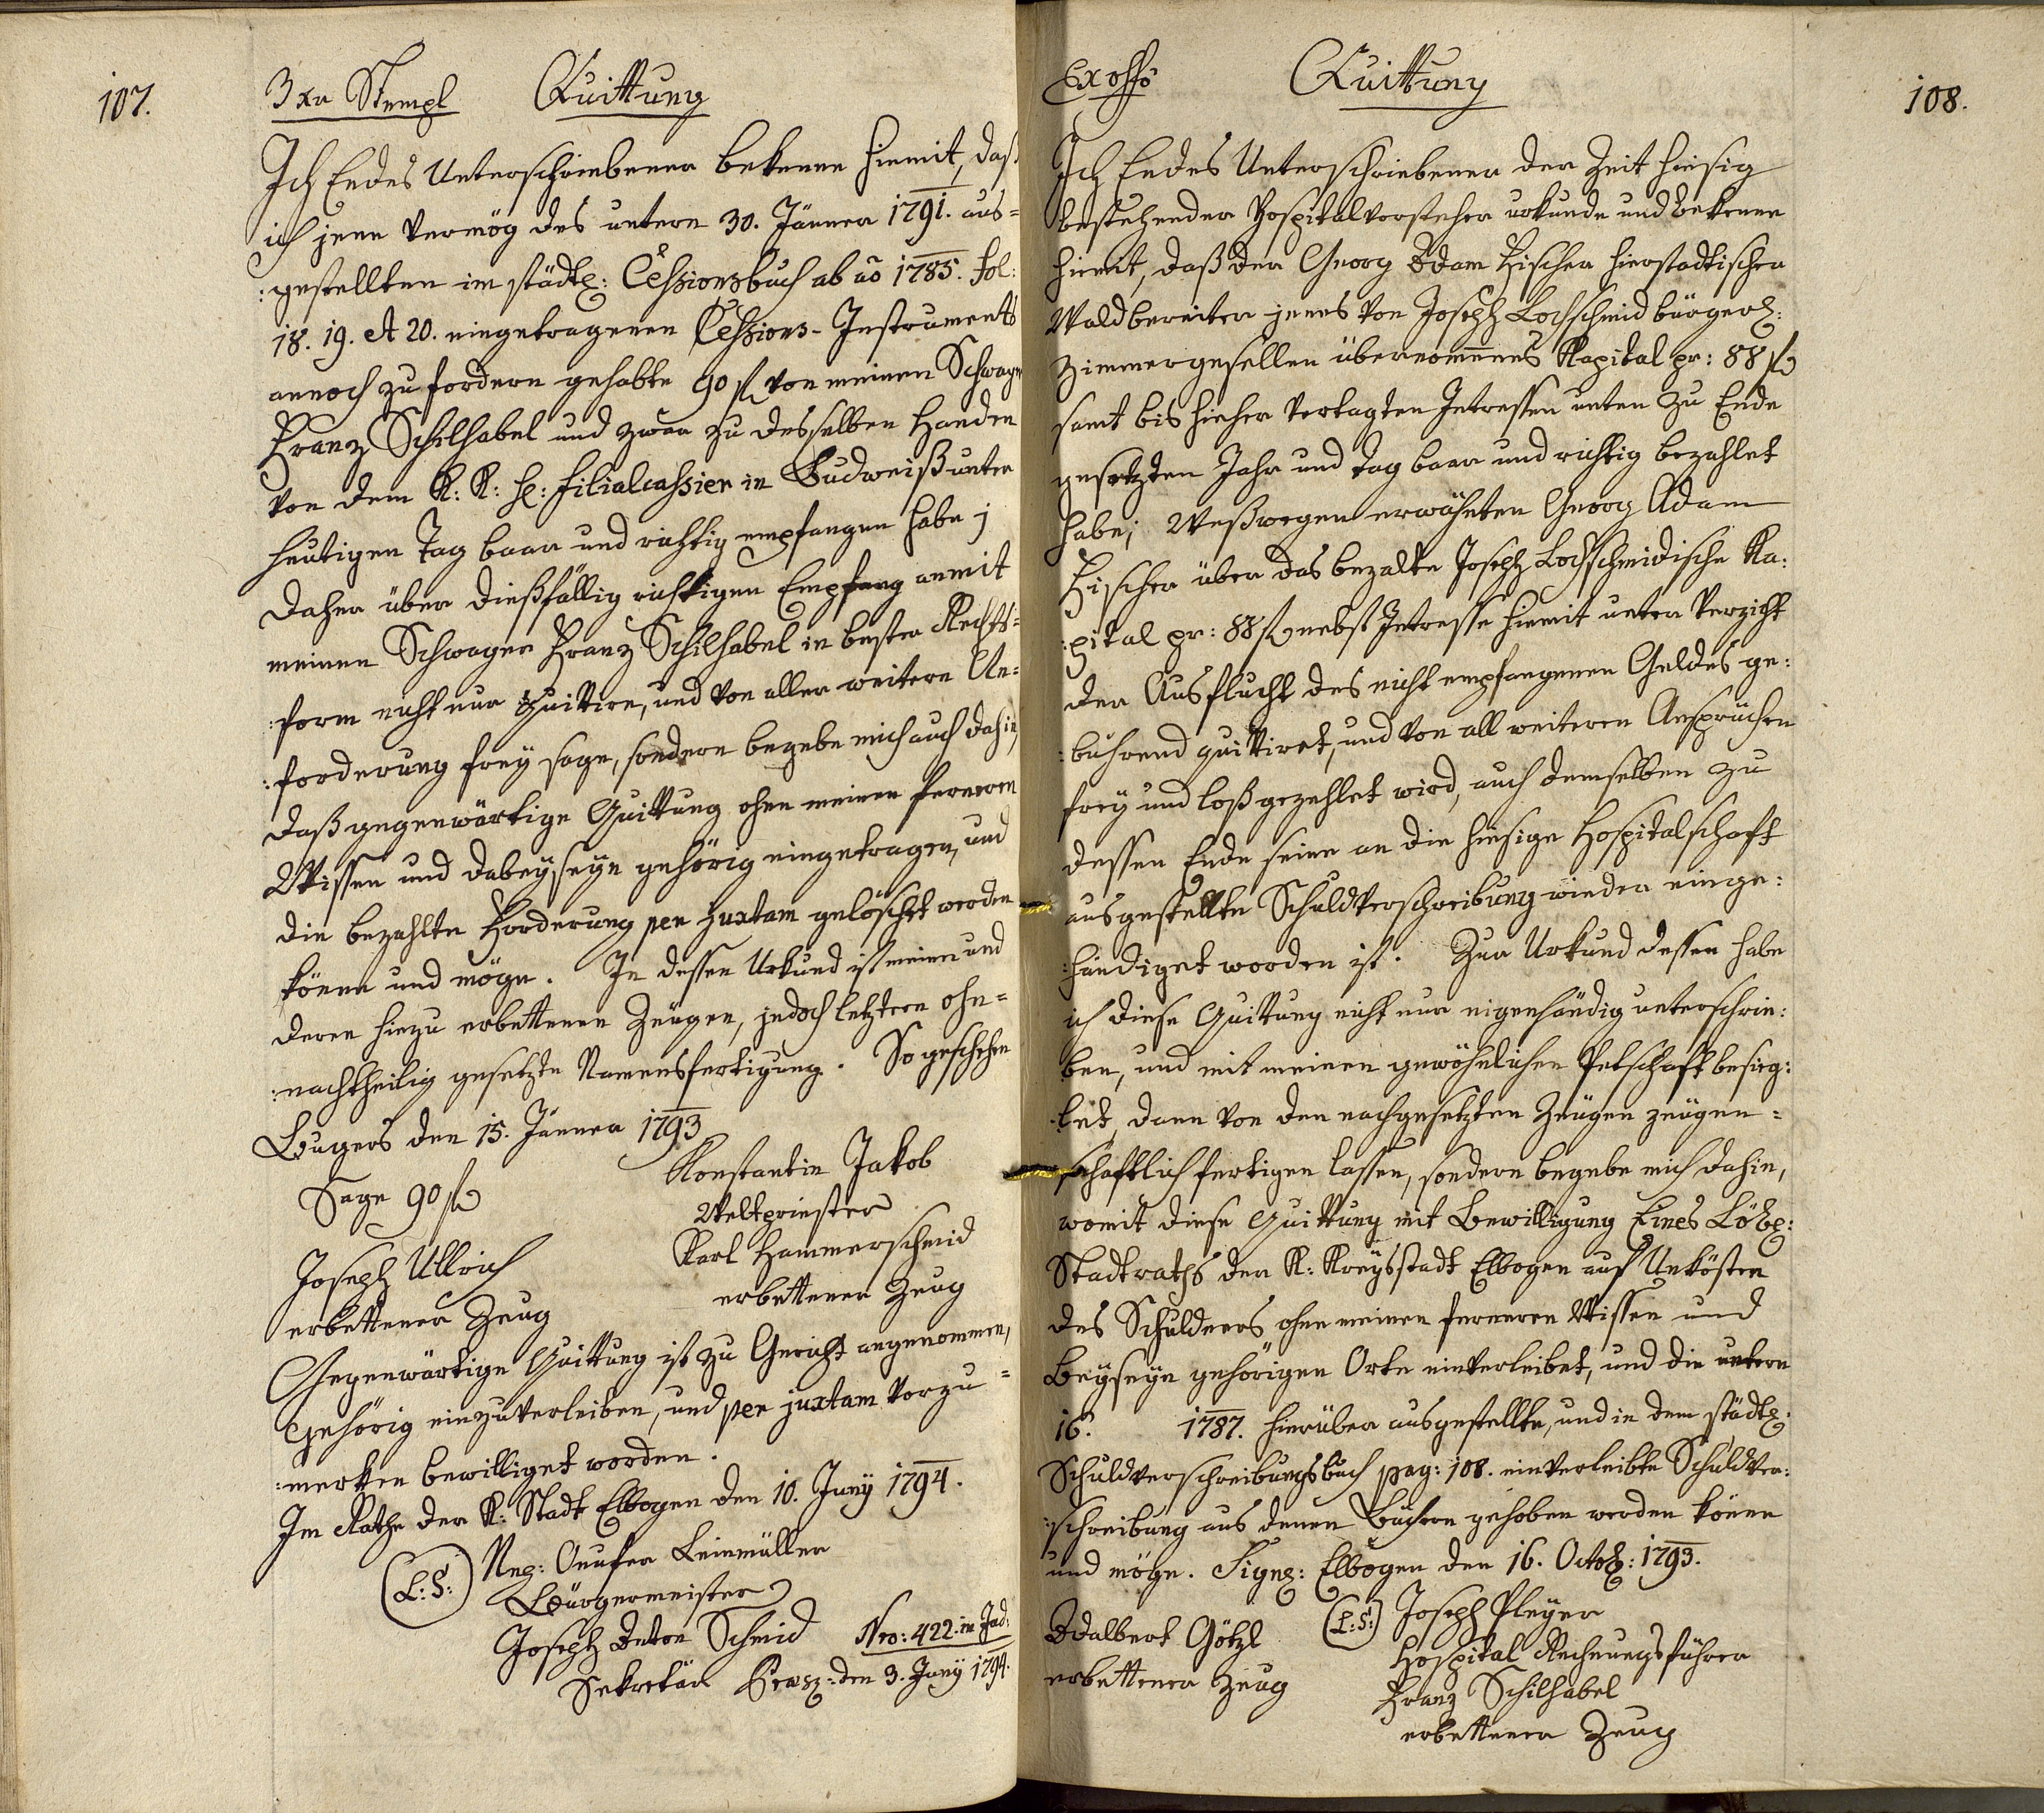 107.
3 xr Stempl Quittung
Ich Endes Unterschriebener bekenne hiemit, daß
ich jene vermög des untern 30. Jänner 1791. aus=
:gestellten im städtl: Cessionsbuch ab aõ 1785. fol:
18. 19. et 20. eingetragenen Cessions-Instruments
annoch zu fordern gehabte 90 fl von meinen Schwager
Franz Schilhabel und zwar zu desselben Handen
von dem K: K: H: Filialcassier in Budweiß unter
heutigen Tag baar und richtig empfangen habe;
daher über dießfällig richtigen Empfang anmit
meinen Schwager Franz Schilhabel in bester Rechts=
:form nicht nur quitire, und von aller weitern An=
:forderung frey sage, sondern begebe mich auch dahin,
daß gegenwärtige Quittung ohne meinen ferneren
Wissen und dabeyseyn gehörig eingetragen, und
die bezahlte Forderung per juxtam gelöscht werden
könne und möge. In dessen Urkund ist meine und
deren hiezu erbettenen Zeugen, jedoch letztern ohn=
:nachtheilig gesetzte Namensfertigung. So geschehen
Bugers den 15. Jänner 1793
Sage 90 fl Konstantin Jakob
Weltpriester
Joseph Ullrich Karl Hammerschmid
erbettener Zeug erbettener Zeug
Gegenwärtige Quittung ist zu Gericht angenommen,
gehörig einzuverleiben, und per juxtam vorzu=
:merken bewilliget worden.
Im Rathe der K: Stadt Elbogen den 10. Juny 1794.
(L: S:) Onufer Leinmüller
Bürgermeister
Joseph Anton Schmid Nro: 422. in Jud:
Sekretär Praes: den 3. Juny 1794.
108.
Ex offo Quittung
Ich Endes Unterschriebener der Zeit hiesig
bestehender Hospitalvorsteher urkunde und bekenne
hiemit, daß der Georg Adam Fischer hierstadtischer
Waldbereiter jenes von Joseph Lochschmid bürgerl:
Zimmergesellen übernommenes Kapital pr: 88 fl
samt bis hieher vertagten Intressen unten zu Ende
gesetzten Jahr und Tag baar und richtig bezahlet
habe; Weßwegen erwähnten Georg Adam
Fischer über das bezalte Joseph Lochschmidische Ka:
:pital pr: 88 fl nebst Intresse hiemit unter Verzicht
der Ausflucht des nicht empfangenen Geldes ge:
:bührend quittiret, und von all weiteren Ansprüchen
frey und loß gezehlet wird, auch demselben zu
dessen Ende seine an die hiesige Hospitalschaft
ausgestellte Schuldverschreibung wieder einge:
:händiget worden ist. Zur Urkund dessen habe
ich diese Quittung nicht nur eigenhändig unterschrie:
ben, und mit meinen gewöhnlichen Petschaft besieg:
:let, dann von den nachgesetzten Zeugen zeugen=
schaftlich fertigen lassen, sondern begebe mich dahin,
womit diese Quittung mit Bewilligung Eines Löbl:
Stadtraths der K: Kreysstadt Elbogen auf Unkösten
des Schuldners ohne meinen ferneren Wissen und
Beyseyn gehörigen Orte einverleibet, und die untern
16. 1787. hierüber ausgestellte, und in dem städtl:
Schuldverschreibungsbuch pag: 108. einverleibte Schuldver:
:schreibung aus denen Büchern gehoben werden könne
und möge. Signl: Elbogen den 16. Octob: 1793.
(L: S:) Joseph Pleyer
Adalbert Götzl Hospital Rechnungsführer
erbettener Zeug Franz Schilhabel
erbettener Zeug